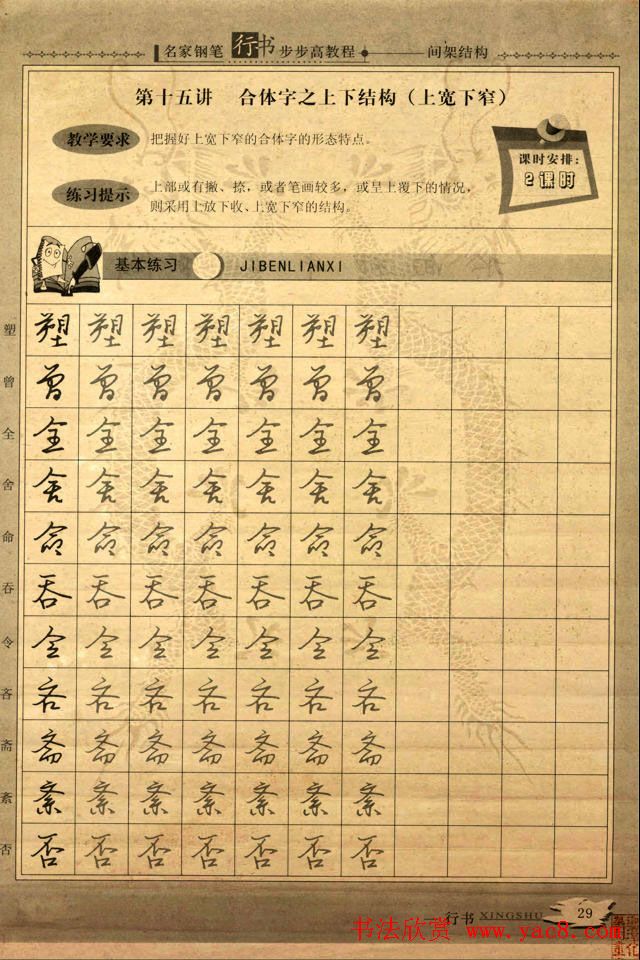 名家钢笔行书步步高教程 间架结构
第十五讲 合体字之上下结构（上宽下窄）
教学要求 把握好上宽下窄的合体字的形态特点。
课时安排:
2课时
练习提示 上部或有撇、捺，或者笔画较多，或呈上覆下的情况，
则采用上放下收、上宽下窄的结构。
基本练习 JIBENLIANXI
塑 塑 塑 塑 塑 塑 塑 塑
曾 曾 曾 曾 曾 曾 曾 曾
全 全 全 全 全 全 全 全
舍 舍 舍 舍 舍 舍 舍 舍
命 命 命 命 命 命 命 命
吞 吞 吞 吞 吞 吞 吞 吞
令 令 令 令 令 令 令 令
吝 吝 吝 吝 吝 吝 吝 吝
斋 斋 斋 斋 斋 斋 斋 斋
紊 紊 紊 紊 紊 紊 紊 紊
否 否 否 否 否 否 否 否
行书 XINGSHU 29
书法欣赏 www.yac8.com